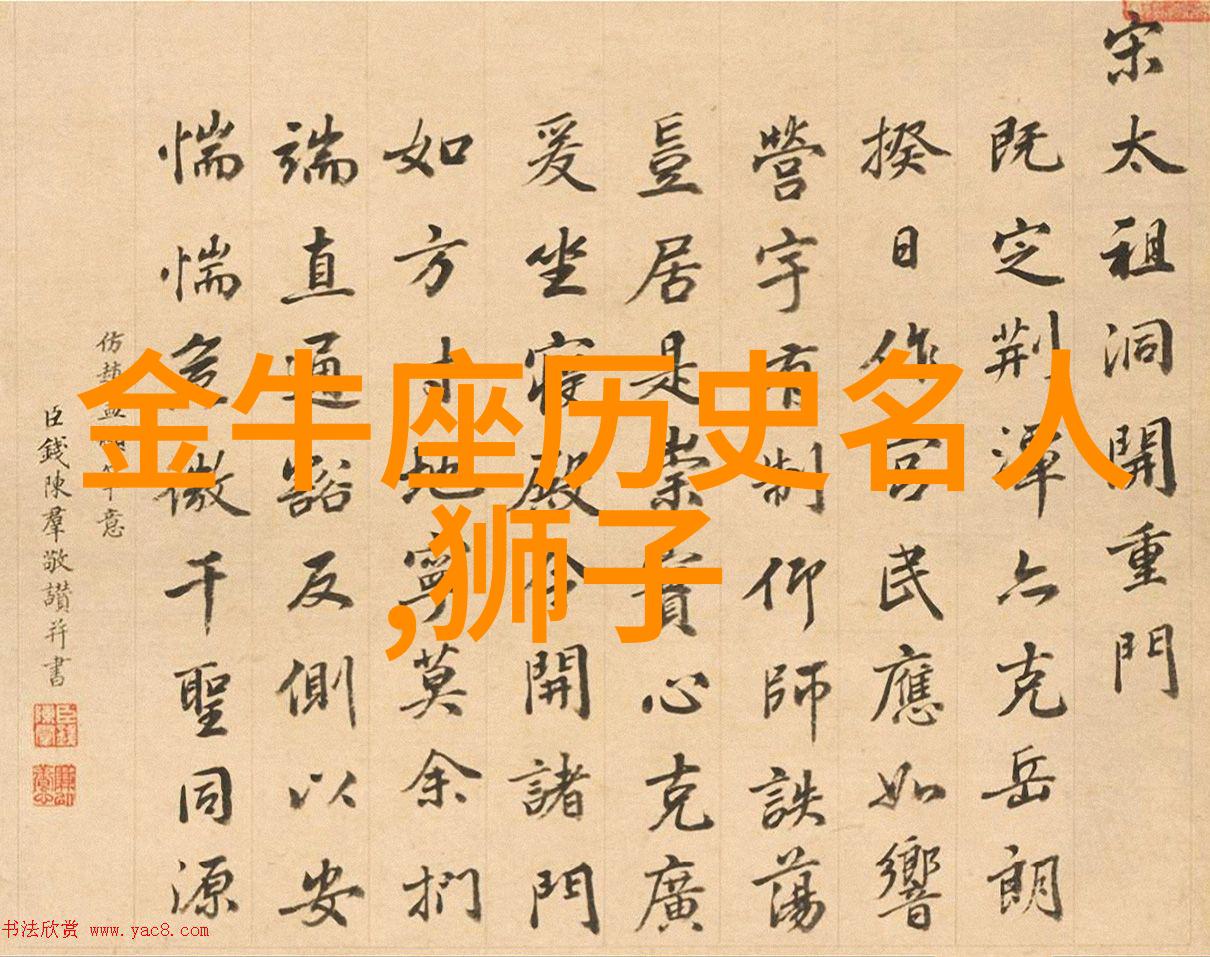 宋太祖洞開重門
既定荆潭亦克岳朗
揆日作宫民應如響
營宇有制仰師詄蕩
豈居是崇實心克廣
爰坐寝殿令開諸門
如方寸地寧莫余捫
端直通豁反側以安
惴惴危微千聖同源
仿趙孟意
臣錢陳羣敬讃并書
金牛座历史名人
,狮子
书法欣赏 www.yac8.com